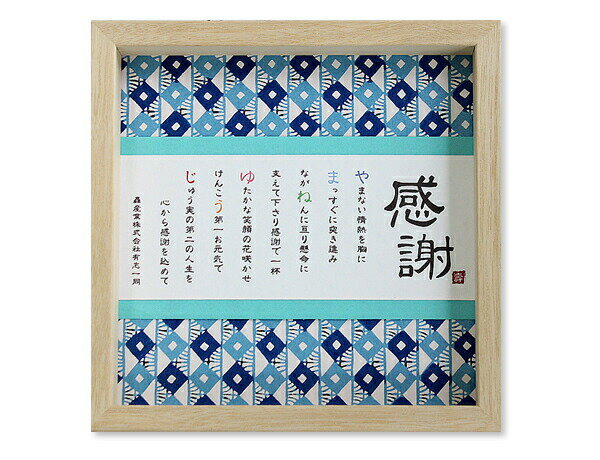 感謝
やまない情熱を胸に
まっすぐに突き進み
ながねんに亘り懸命に
支えて下さり感謝で一杯
ゆたかな笑顔の花咲かせ
けんこう第一お元気で
じゅう実の第二の人生を
心から感謝を込めて
轟産業株式会社有志一同
寿